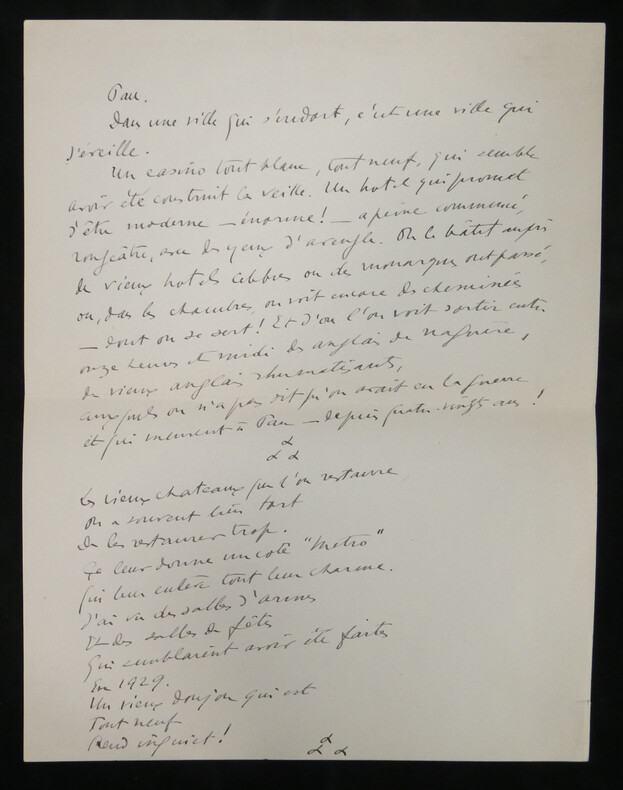 Pau.
Dans une ville qui s'endort, c'est une ville qui
s'éveille.
Un casino tout blanc, tout neuf, qui semble
avoir été construit la veille. Un hotel qui promet
d'être moderne — énorme! — a peine commencé,
rougeâtre, avec des yeux d'aveugle. On le bâtit auprès
de vieux hotels célèbres ou des monarques ont passé,
ou, dans les chambres, on voit encore des cheminées
— dont on se sert! Et d'ou l'on voit sortir entre
onze heures et midi des anglais de naguère,
de vieux anglais rhumatisants,
auxquels on n'a pas dit qu'on avait eu la guerre
et qui meurent à Pau — depuis quatre-vingts ans!
Les vieux chateaux que l'on restaure
on a souvent bien tort
De les restaurer trop.
Ça leur donne un coté "Metro"
Qui leur enlève tout leur charme.
J'ai vu des salles d'armes
Et des salles de fêtes
Qui semblaient avoir été faites
En 1929.
Un vieux donjon qui est
Tout neuf
Rend inquiet!